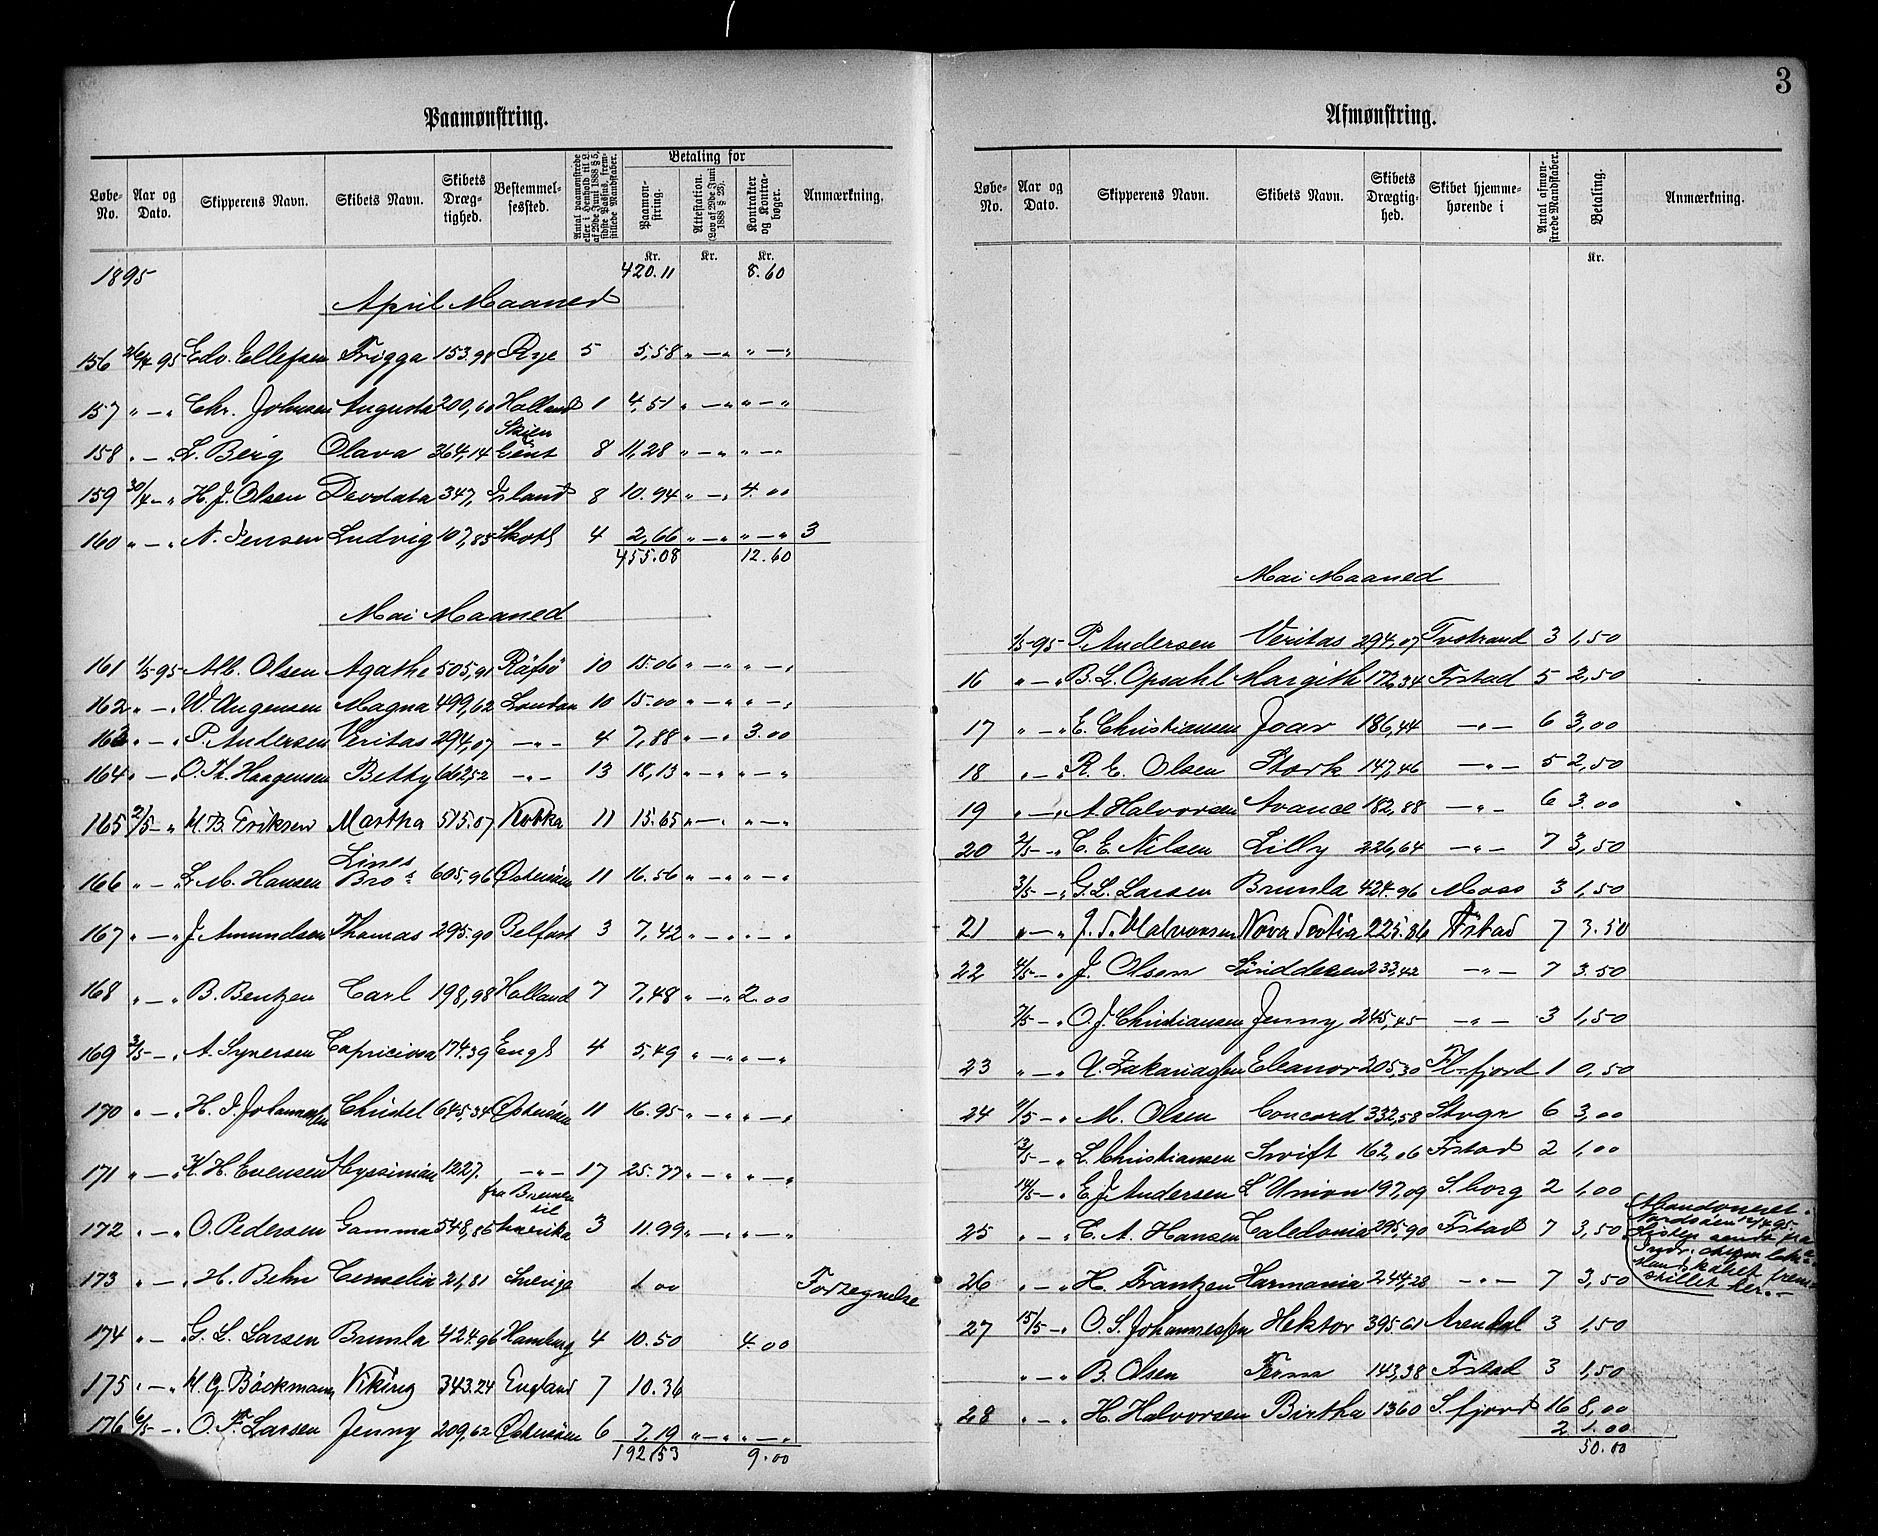 3
Paamønstring.
Løbe-No. Aar og Dato. Skipperens Navn. Skibets Navn. Skibets Dræg-tighed. Bestemmel-sessted. Betaling for Paamøn-string. Attestation. (Lov af 29de Juni 1888 § 25). Kontrakter og Kontra-bøger. Anmærkning.
Kr. Kr. Kr.
1895 420.11 8.60
April Maaned
156 26/4 95 Edv. Ellefsen Frigga 153.98 Rye 5 5,58 „ — „ „ — „
157 „ — „ Chr. Johnsen Augusta 200,60 Holland 1 4,51 „ — „ „ — „
158 „ — „ L. Berg Olava 364,14 Skien Gent 8 11,28 „ — „ „ — „
159 30/4 — „ H. J. Olsen Deodata 347, Island 8 10.94 „ — „ 4.00
160 „ — „ N. Jensen Ludvig 107,85 Skotl 4 2,66 „ — „ „ — „ 3
455.08 12.60
Mai Maaned
161 1/5 95 Alb. Olsen Agathe 505,91 Råfsö 10 15.06 „ — „ „ — „
162 „ — „ W. Augensen Magna 499,62 London 10 15.00 „ — „ „ — „
163 „ — „ P. Andersen Veritas 294,07 — „ — 4 7,88 „ — „ 3.00
164 „ — „ O. Th. Haagensen Betty 662,52 — „ — 13 18,13 „ — „ „ — „
165 2/5 — „ M. B. Eriksen Martha 515.07 Kotka 11 15.65 „ — „ „ — „
166 „ — „ L. M. Hansen Lines Bros 605,96 Østersöen 11 16.56 „ — „ „ — „
167 „ — „ J. Amundsen Thomas 295.90 Belfast 3 7,42 „ — „ „ — „
168 „ — „ B. Bentzen Carl 198,98 Holland 7 7,48 „ — „ 2.00
169 3/5 — „ A. Syversen Capriciosa 174.39 Engl 4 5,49 „ — „ „ — „
170 „ — „ H. J. Johannessen Christel 645,34 Østersöen 11 16.95 „ — „ „ — „
171 „ — „ K. H. Evensen Abyssinian 1227. — „ — 17 25.77 „ — „ „ — „
172 „ — „ O. Pedersen Gamma 548,86 fra Bremen til Amerika 3 11.99 „ — „ „ — „
173 „ — „ H. Behn Cornelia 21,81 Sverige 1 00 Forzegnelse
174 „ — „ G. L. Larsen Brunla 424.96 Hamburg 4 10.50 4.00
175 „ — „ M. G. Böckmann Viking 343.24 England 7 10.36
176 6/5 — „ O. F. Larsen Jenny 209,62 Østersöen 6 7,19 „ — „ „ — „
192,53 9.00
Afmønstring.
Løbe-No. Aar og Dato. Skipperens Navn. Skibets Navn. Skibets Drægtig-hed. Skibet hjemme-hørende i Antal afmøn-strede Mandskaber. Betaling. Anmærkning.
Kr.
Mai Maaned
1/5 95 P. Andersen Veritas 294,07 Tvstrand 3 1,50
16 „ — „ B. L. Opsahl Margith 172,34 Frstad 5 2,50
17 „ — „ E. Christiansen Joar 186,44 — „ — 6 3,00
18 „ — „ R. E. Olsen Stork 147,46 — „ — 5 2,50
19 „ — „ A. Halvorsen Avance 182,88 — „ — 6 3.00
20 2/5 — „ C. E. Nilsen Lilly 226,64 — „ — 7 3,50
3/5 — „ G. L. Larsen Brunla 424.96 Moss 3 1,50
21 „ — „ J. S. Halvorsen Nova Scotia 225.86 Frstad 7 3.50
22 4/5 — „ J. Olsen 233,42 — „ — 7 3.50
7/5 — „ O. J. Christiansen Jenny 245,45 — „ — 3 1,50
23 „ — „ Zakariassen Eleanor 205,30 Fl-fjord 1 0,50
24 11/5 — „ M. Olsen Concord 332,58 Stvgr 6 3,00
13/5 — „ L. Christiansen Swift 162,06 Frstad 2 1,00
14/5 — „ E. J. Andersen L'Union 197,09 S.borg 2 1,00
25 „ — „ C. A. Hansen Caledonia 295.90 Frstad 7 3,50 Abandoneret Nordsöen 12/4 95.
26 „ — „ H. Frantzen Harmonia 244,28 — „ — 7 3,50
27 15/5 — „ O. S. Johannessen Hektor 395.61 Arendal 3 1,50
„ — „ B. Olsen Ferm 143,38 Frstad 3 1,50
28 „ — „ H. Halvorsen Birtha 1360 S.fjord 16 8,00
2 1.00
50.00